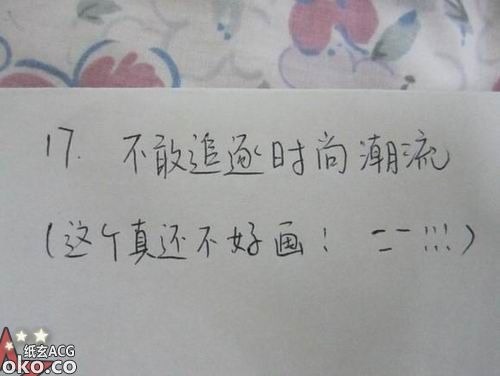 17. 不敢追逐时尚潮流
(这个真还不好画! 二一!!!)
纸玄ACG
oko.co